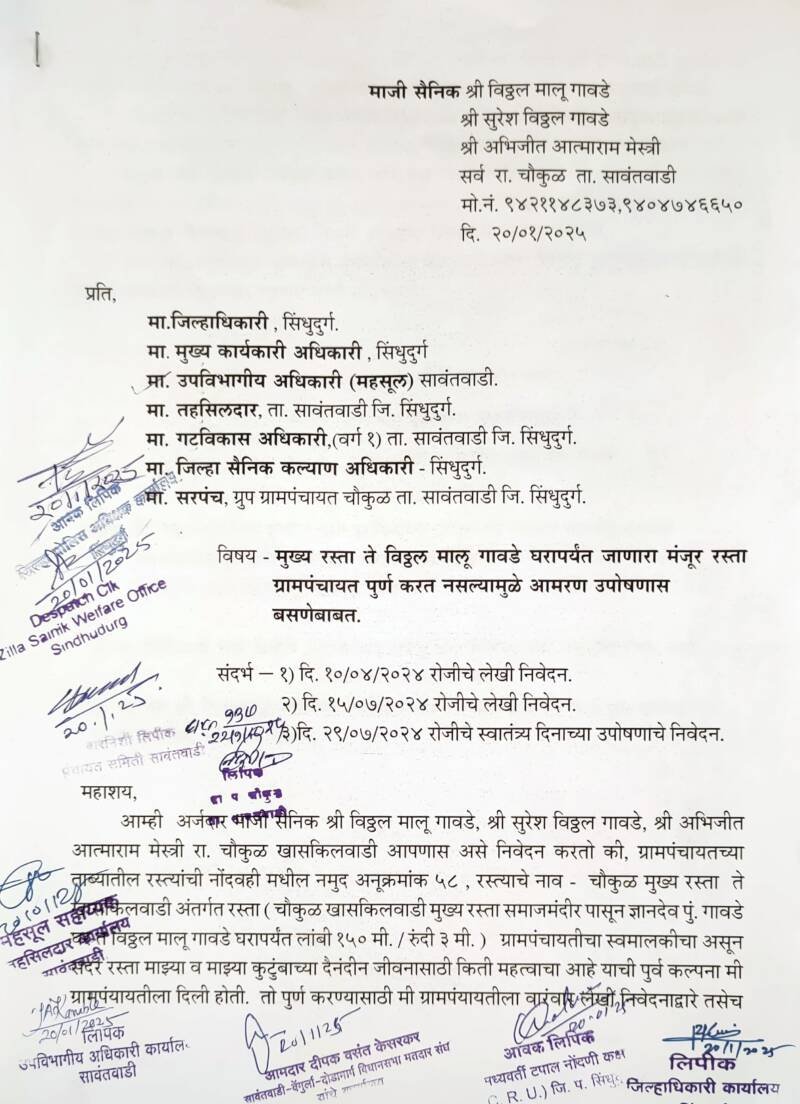 माजी सैनिक श्री विठ्ठल मालू गावडे
श्री सुरेश विठ्ठल गावडे
श्री अभिजीत आत्माराम मेस्त्री
सर्व रा. चौकुळ ता. सावंतवाडी
मो.नं. ९४२११४८३७३,९४०४७४६६५०
दि. २०/०१/२०२५
प्रति,
मा.जिल्हाधिकारी , सिंधुदुर्ग.
मा. मुख्य कार्यकारी अधिकारी , सिंधुदुर्ग
मा. उपविभागीय अधिकारी (महसूल) सावंतवाडी.
मा. तहसिलदार, ता. सावंतवाडी जि. सिंधुदुर्ग.
मा. गटविकास अधिकारी,(वर्ग १) ता. सावंतवाडी जि. सिंधुदुर्ग.
मा. जिल्हा सैनिक कल्याण अधिकारी - सिंधुदुर्ग.
मा. सरपंच, ग्रुप ग्रामपंचायत चौकुळ ता. सावंतवाडी जि. सिंधुदुर्ग.
20/1/2025
आवक लिपिक
20/01/2025
Despatch Clk
Zilla Sainik Welfare Office
Sindhudurg
विषय - मुख्य रस्ता ते विठ्ठल मालू गावडे घरापर्यंत जाणारा मंजूर रस्ता
ग्रामपंचायत पुर्ण करत नसल्यामुळे आमरण उपोषणास
बसणेबाबत.
संदर्भ – १) दि. १०/०४/२०२४ रोजीचे लेखी निवेदन.
२) दि. १५/०७/२०२४ रोजीचे लेखी निवेदन.
३)दि. २९/०७/२०२४ रोजीचे स्वातंत्र्य दिनाच्या उपोषणाचे निवेदन.
20.1.25.
बारनिशी लिपीक
पंचायत समिती सावंतवाडी
लिपिक
महाशय,
आम्ही अर्जदार माजी सैनिक श्री विठ्ठल मालू गावडे, श्री सुरेश विठ्ठल गावडे, श्री अभिजीत
आत्माराम मेस्त्री रा. चौकुळ खासकिलवाडी आपणास असे निवेदन करतो की, ग्रामपंचायतच्या
ताब्यातील रस्त्यांची नोंदवही मधील नमुद अनूक्रमांक ५८ , रस्त्याचे नाव - चौकुळ मुख्य रस्ता ते
खासकिलवाडी अंतर्गत रस्ता ( चौकुळ खासकिलवाडी मुख्य रस्ता समाजमंदीर पासून ज्ञानदेव पुं. गावडे
ते विठ्ठल मालू गावडे घरापर्यंत लांबी १५० मी. / रुंदी ३ मी. ) ग्रामपंचायतीचा स्वमालकीचा असून
सदर रस्ता माझ्या व माझ्या कुटुंबाच्या दैनंदीन जीवनासाठी किती महत्वाचा आहे याची पुर्व कल्पना मी
ग्रामपंयायतीला दिली होती. तो पुर्ण करण्यासाठी मी ग्रामपंयायतीला वारंवार लेखी निवेदनाद्वारे तसेच
महसूल सहाय्यक
तहसिलदार कार्यालय
सावंतवाडी
20/01/2025
लिपिक
उपविभागीय अधिकारी कार्यालय
सावंतवाडी
20/1/25
आमदार दीपक वसंत केसरकर
सावंतवाडी-वेंगुर्ला-दोडामार्ग विधानसभा मतदार संघ
आवक लिपिक
मध्यवर्ती टपाल नोंदणी कक्ष
C. R. U.) जि. प. सिंधु
20/1/2025
लिपीक
जिल्हाधिकारी कार्यालय